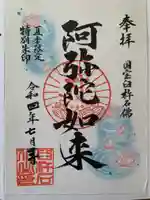 奉拝
国宝臼杵石佛
阿弥陀如来
夏季限定
特別朱印
令和四年七月